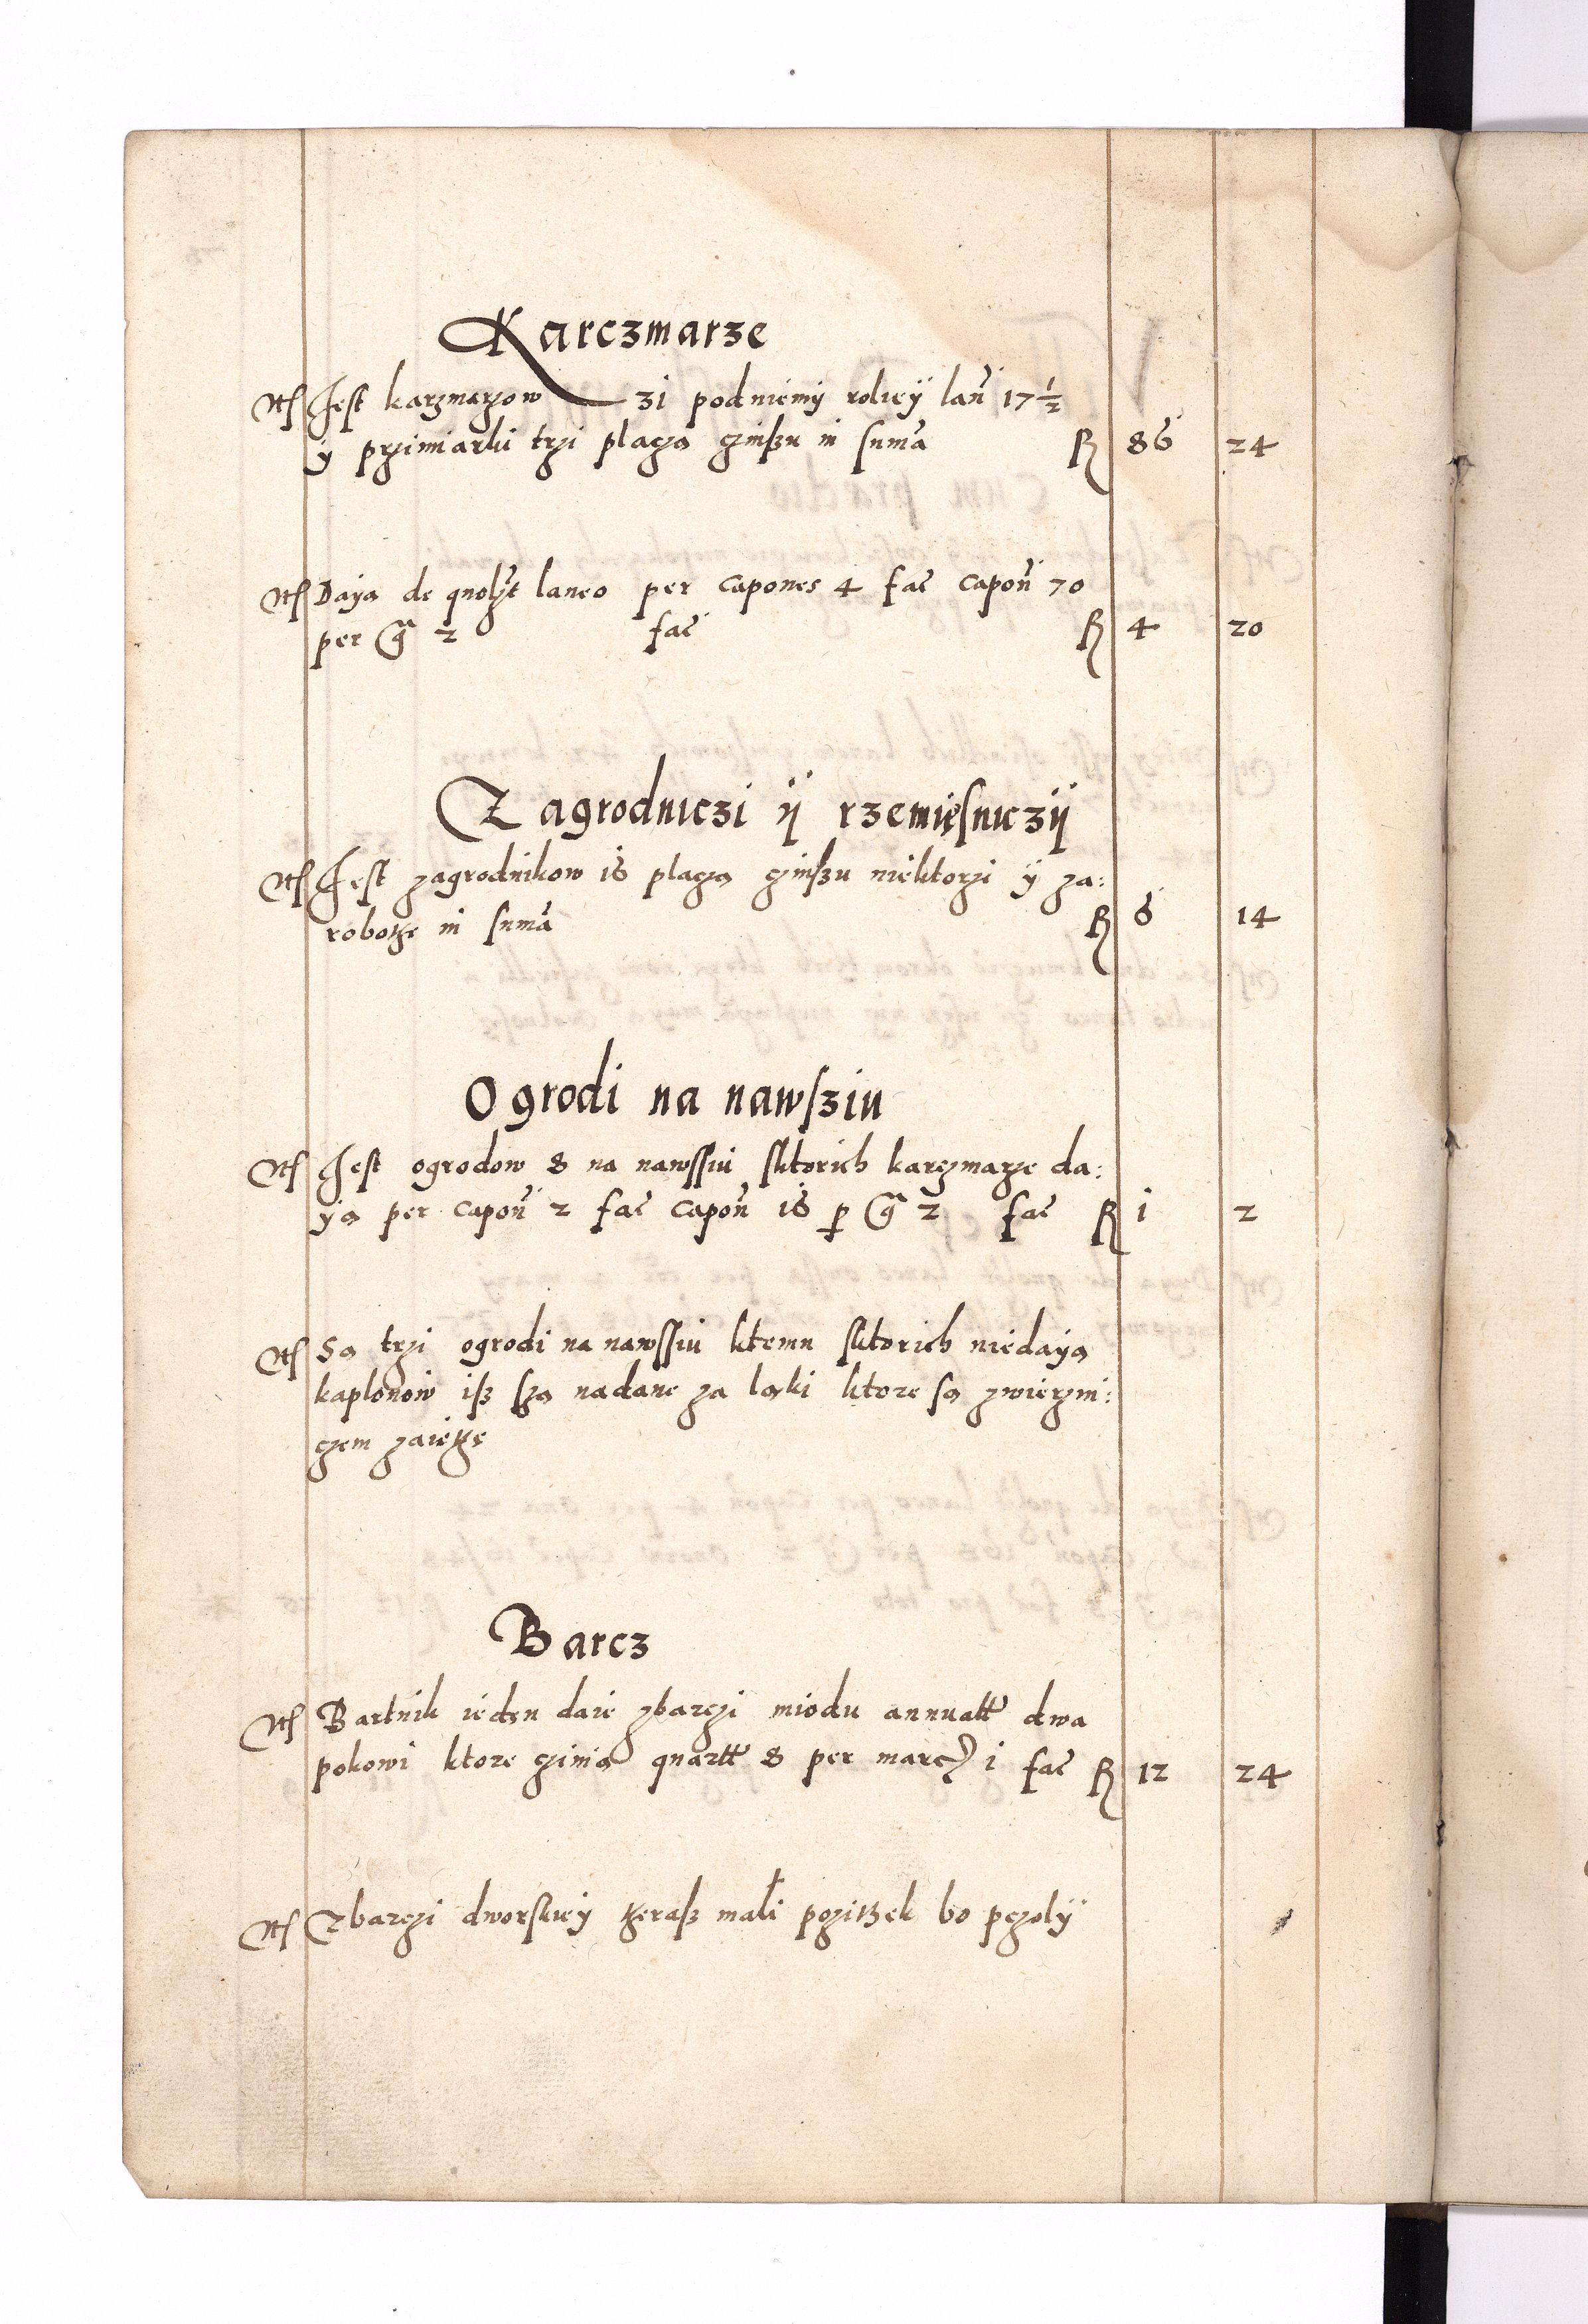 Karczmarze
Itꝭ Jest karzmarzow 31 podniemÿ roliej lañ 17 ½
ÿ przimiarki trzi placzą czinßu in suma̅ R 86 24
Itꝭ Daÿą de quolꝫt laneo per capones 4 fac̃ capoñ 70
per gͣ 2 fac̃ R 4 20
Zagrodniczi ÿ rzemięsniczÿ
Itꝭ Jest zagrodnikow 16 placzą czinßu niektorzi ÿ za:
robotze in suma̅ R 6 14
Ogrodi na nawsziu
Itꝭ Jest ogrodow 8 na nawssiu sktorich karczmarze da:
ÿą per capoñ 2 fac̃ capoñ 16 p̱ gͣ 2 fac̃ R 1 2
Itꝭ Są trzi ogrodi na nawssiu ktemu sktorich niedaÿą
kaplonow iß szą nadane za ląki ktore są zwierzni:
czem zaiętze
Barcz
Itꝭ Bartnik ieden daie zbarczi miodu annuatt dwa
pokowi ktore czinią quartt 8 per marc̃ 1 fac̃ R 12 24
Itꝭ Zbarczi dworskiej teraß mali pozitzek bo pczolÿ